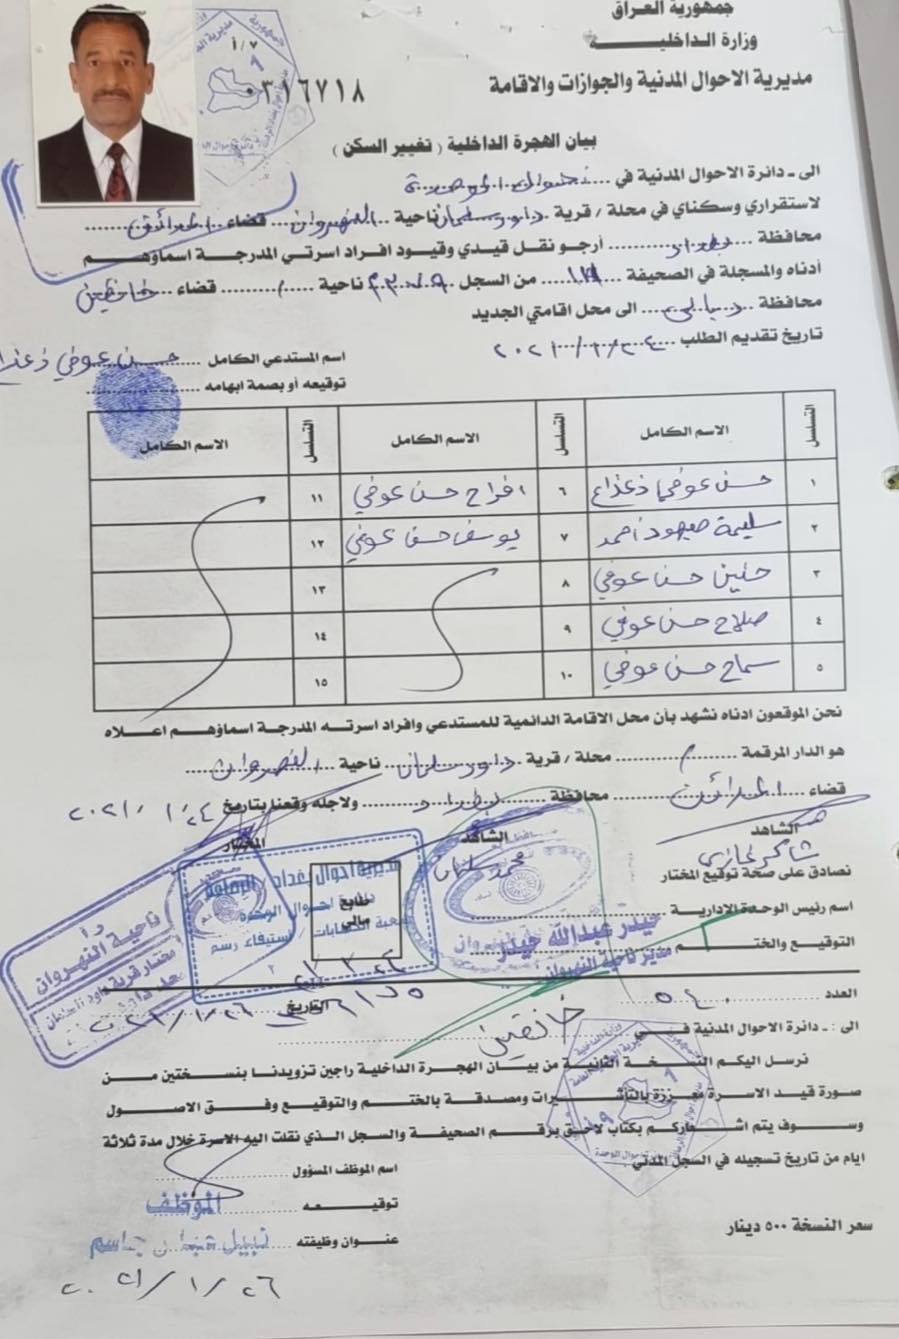 جمهورية العراق
وزارة الداخليـــــــة
مديرية الاحوال المدنية والجوازات والاقامة
أ/٧
٠٣١٦٧١٨
بيان الهجرة الداخلية ( تغيير السكن )
الى ـ دائرة الاحوال المدنية في
لاستقراري وسكناي في محلة / قرية داود سلمان ناحية النهروان قضاء المدائن
محافظة بغداد أرجو نقل قيدي وقيود افراد اسرتي المدرجـــة اسماؤهــــم
أدناه والمسجلة في الصحيفة من السجل ناحية / قضاء خانقين
محافظة ديالى الى محل اقامتي الجديد
تاريخ تقديم الطلب
اسم المستدعي الكامل حسن عوفي
توقيعه أو بصمة ابهامه
التسلسل الاسم الكامل التسلسل الاسم الكامل التسلسل الاسم الكامل
١ حسن عوفي ٦ افراح حسن عوفي ١١
٢ سليمة صيهود احمد ٧ يوسف حسن عوفي ١٢
٣ حنين حسن عوفي ٨ ١٣
٤ صلاح حسن عوفي ٩ ١٤
٥ سماح حسن عوفي ١٠ ١٥
نحن الموقعون ادناه نشهد بأن محل الاقامة الدائمية للمستدعي وافراد اسرته المدرجة اسماؤهـــم اعـــلاه
هو الدار المرقمة محلة / قرية داود سلمان ناحية النهروان
قضاء المدائن محافظة بغداد ولاجله وقعنا بتاريخ ٢٠٢١/١/٢٤
الشاهد الشاهد المختار
شاكر غازي محمد
نصادق على صحة توقيع المختار
اسم رئيس الوحدة الاداريـــة
حيدر عبدالله حيدر
التوقيع والختـــــــم
مدير ناحية النهروان
مديرية احوال بغداد الرصافة
استيفاء رسم
طابع مالي
ناحية النهروان
العدد ٥٤٠ التاريخ ٢٠٢١/١/٢٦
الى : ـ دائرة الاحوال المدنية فـــي خانقين
نرسل اليكم النسخـــة الثانيـــة من بيـــان الهجـــرة الداخليـــة راجين تزويدنـــا بنسختين مـــن
صورة قيـد الاسـرة معـززة بالتأشـيرات ومصدقـة بالختـم والتوقيـع وفـق الاصـول
وســـوف يتم اشـــعاركـــم بكتاب لاحـق برقـــم الصحيفـــة والسجل الـــذي نقلت اليه الاسرة خلال مدة ثلاثة
ايام من تاريخ تسجيله في السجل المدني
اسم الموظف المسؤول
توقيعـــــه الموظف
عنـــوان وظيفته نبيل جاسم
سعر النسخة ٥٠٠ دينار
٢٠٢١/١/٢٦